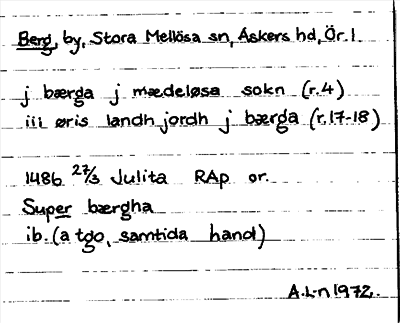 Berg, by, Stora Mellösa sn, Askers hd, Ör. l.
j bærga j mædeløsa sokn (r.4)
iii øris landh jordh j bærga (r.17-18)
1486 27/3 Julita RAp or.
Super bærgha
ib. (a tgo, samtida hand)
A.L-n 1972.